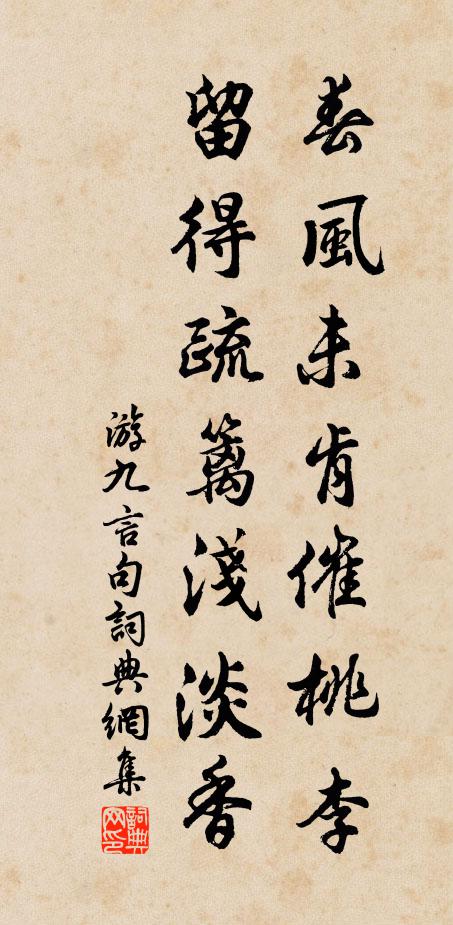 春風未肯催桃李
留得疏籬淺淡香
游九言句詞典網集
詞典網印